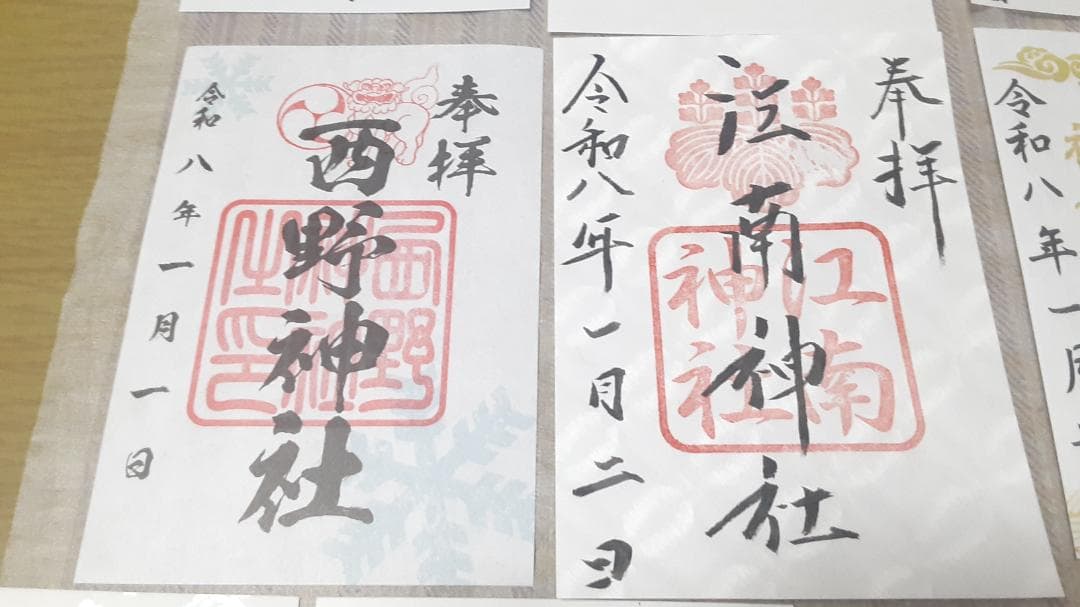 奉拝
西野神社
西野神社之印
令和八年一月一日
奉拝
江南神社
江南神社
令和八年一月二日
令和八年一月